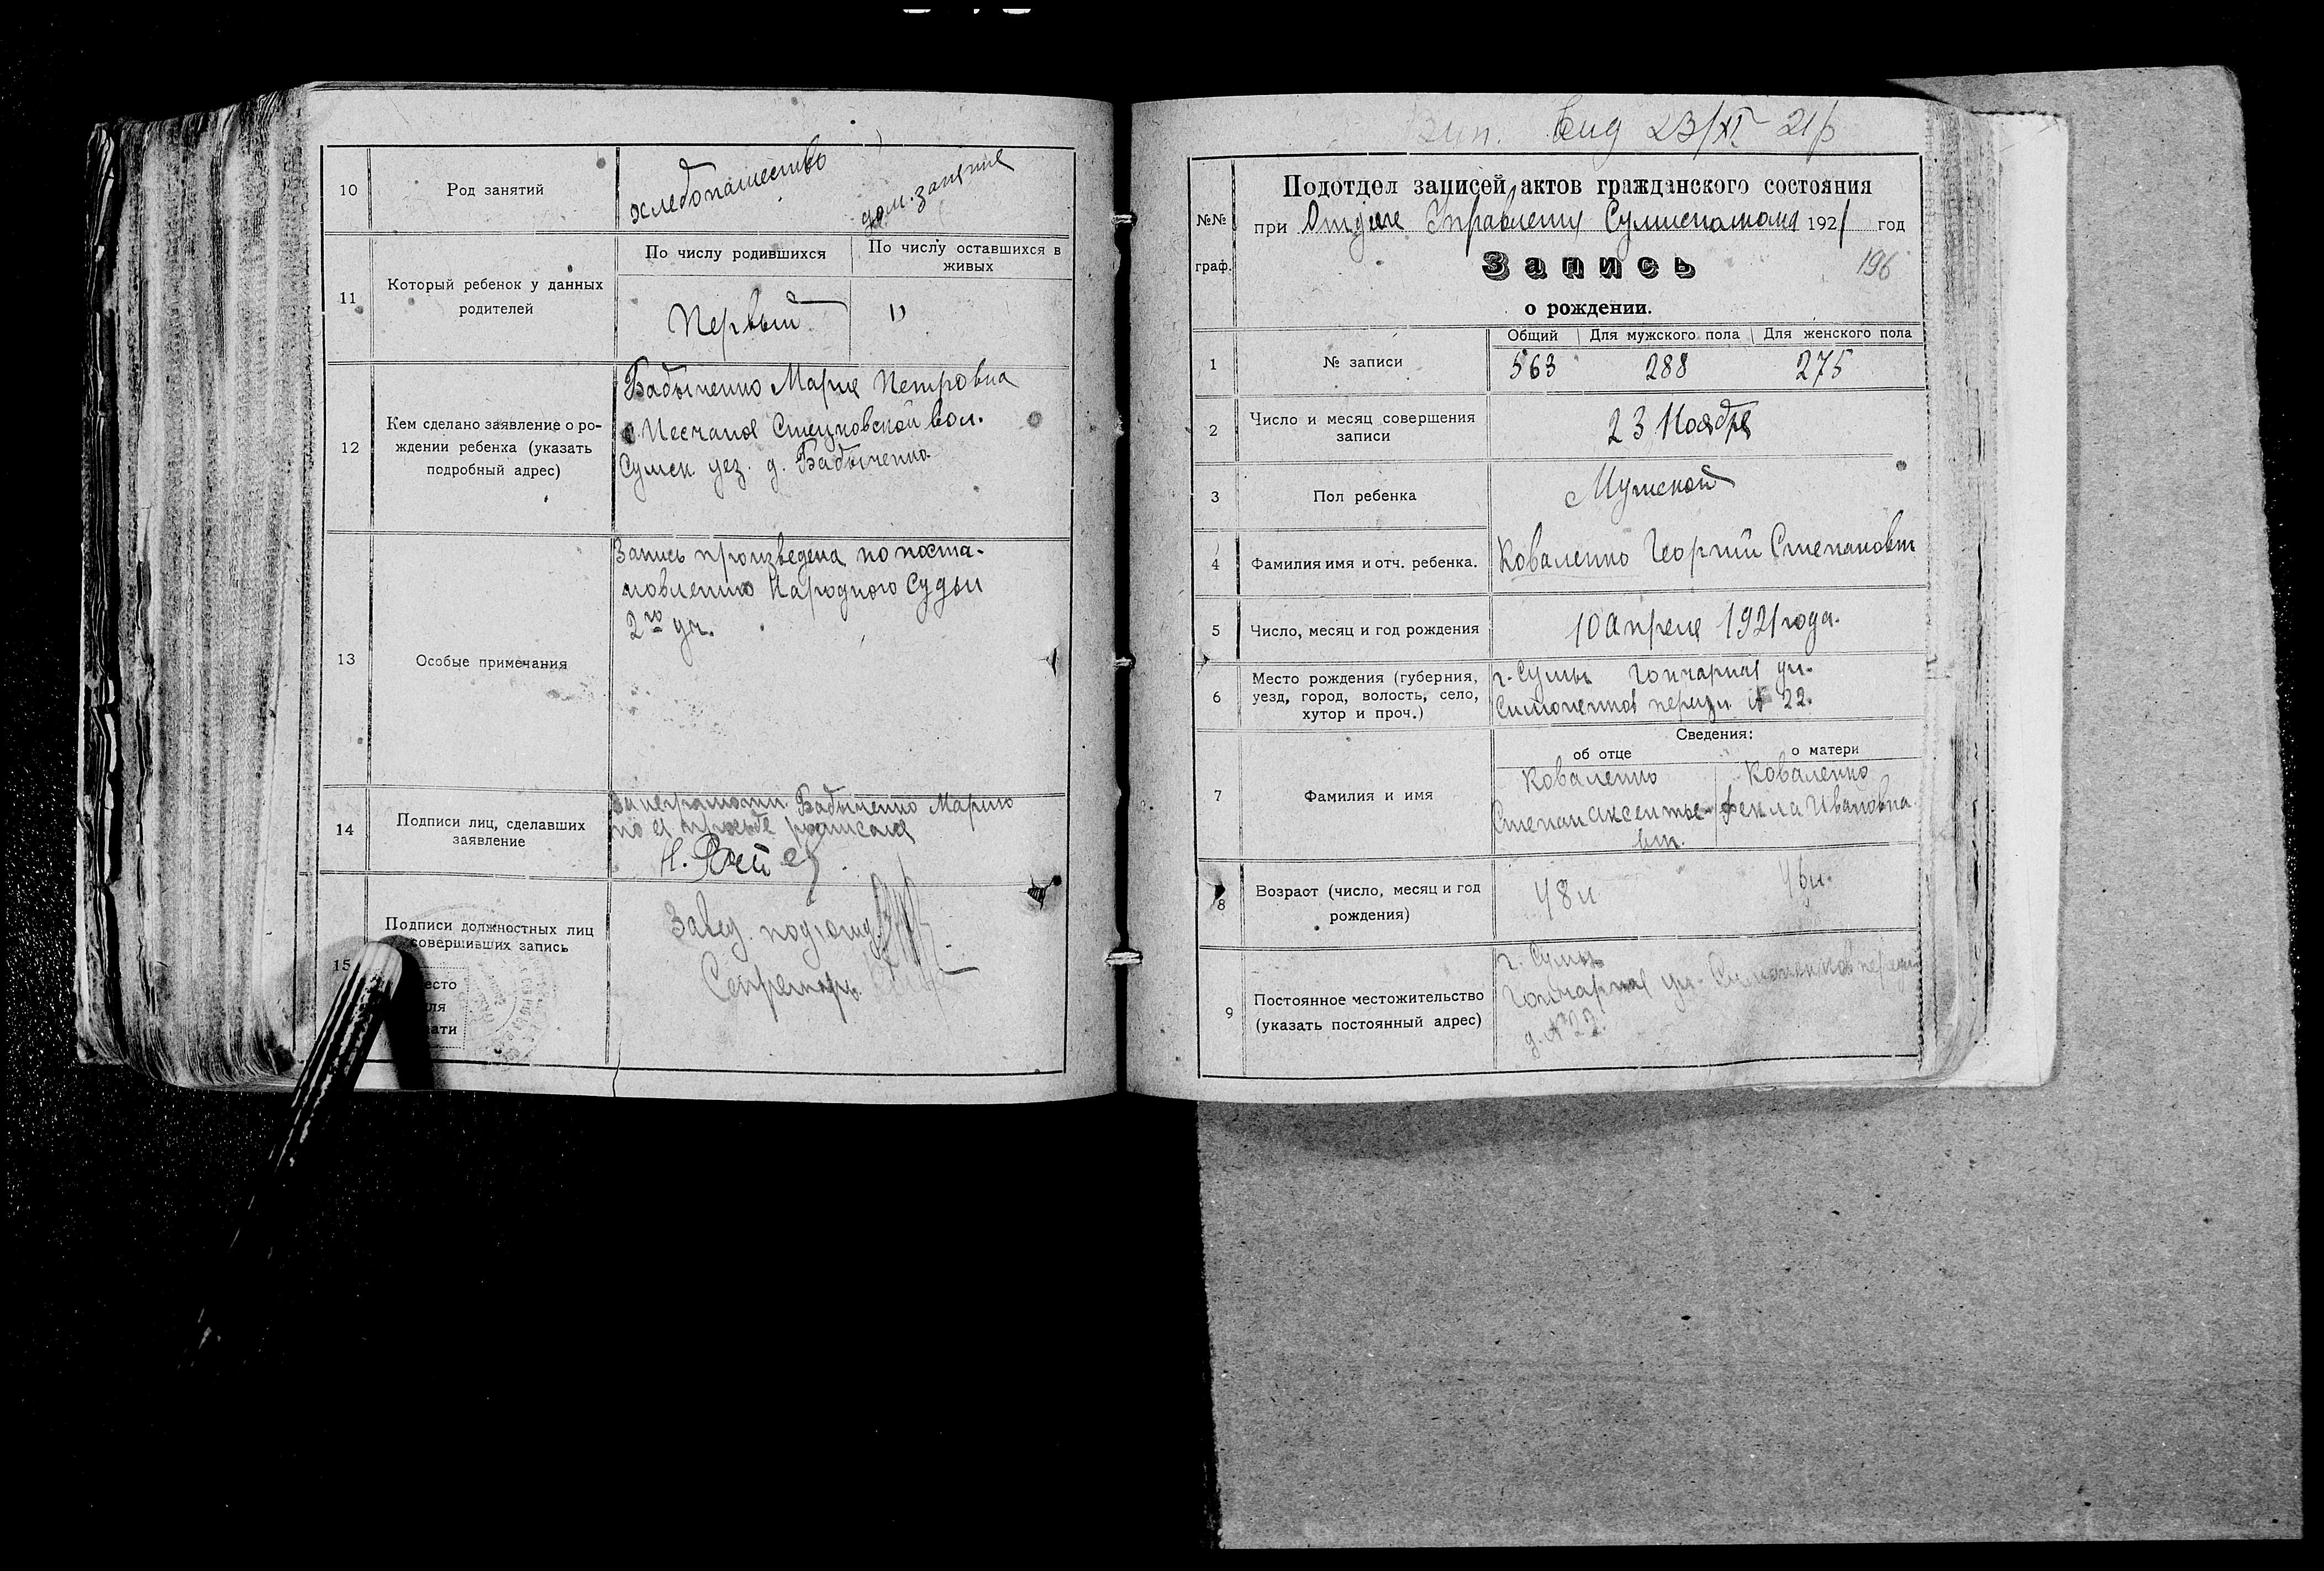 10
Род занятий
хлебопашество
дом. занятие
11
Который ребенок у данных
родителей
По числу родившихся
По числу оставшихся в
живых
Первый
1)
12
Кем сделано заявление о ро-
ждении ребенка (указать
подробный адрес)
Бабыченко Мария Петровна
с. Песчаное Стецковской вол.
Сумск. уез. д. Бабыченко
13
Особые примечания
Запись произведена по поста-
новлению Народного Судьи
2го уч.
14
Подписи лиц, сделавших
заявление
За неграмотн. Бабыченко Марию
по ея просьбе росписался
Н.
15
Подписи должностных лиц
совершивших запись
Завед. подотд.
Секретарь
Вид 23/XI 21
№№
граф.
Подотдел записей актов гражданского состояния
при Отделе Управления 1921 год
Запись
196
о рождении.
1
№ записи
Общий
Для мужского пола
Для женского пола
563
288
275
2
Число и месяц совершения
записи
23 Ноября
3
Пол ребенка
Мужской
4
Фамилия имя и отч. ребенка.
Коваленко Георгий Степанович
5
Число, месяц и год рождения
10 Апреля 1921 года.
6
Место рождения (губерния,
уезд, город, волость, село,
хутор и проч.)
г. Сумы Гончарная ул.
Симоненков переул. № 22.
7
Фамилия и имя
Сведения:
об отце
о матери
Коваленко
Степан Аксентье-
вич.
Коваленко
Фекла Ивановна
8
Возраст (число, месяц и год
рождения)
48 л
46 л.
9
Постоянное местожительство
(указать постоянный адрес)
г. Сумы
Гончарная ул. Симоненков переул.
д. № 22.